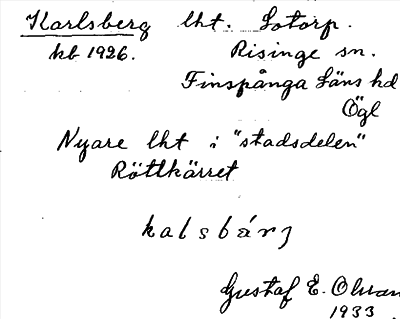 Karlsberg lht. Sotorp.
kb 1926. Risinge sn.
Finspånga Läns hd
Ögl
Nyare lht i "stadsdelen"
Röttkärret
kalsbárj
Gustaf E. Olsson
1933.